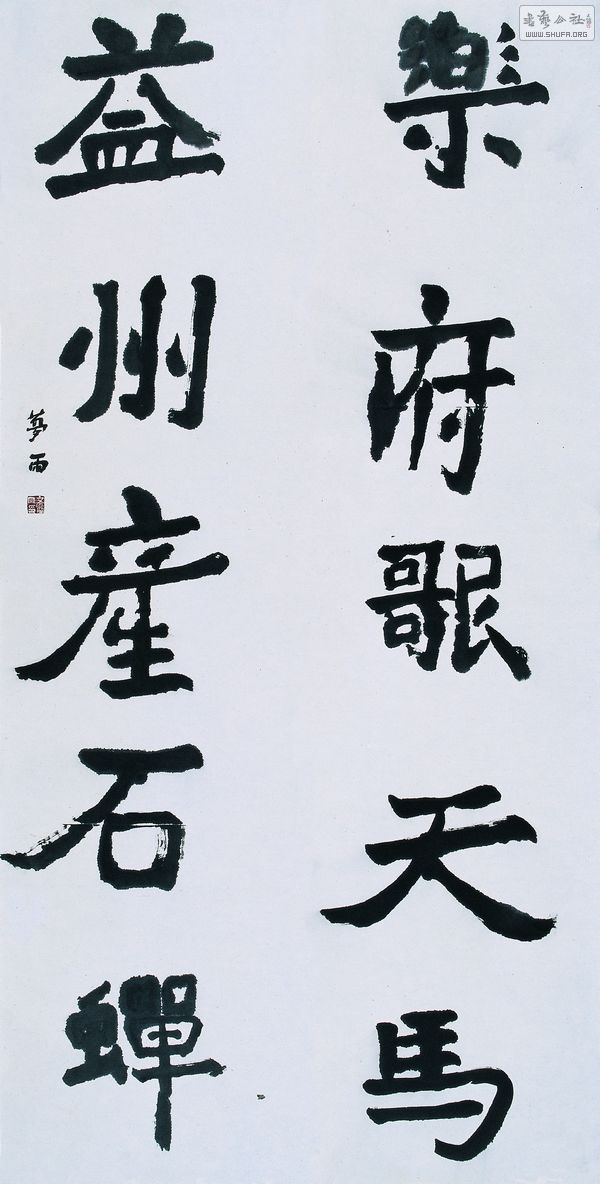 樂府歌天馬
益州產石蟬
夢雨
書藝公社
WWW.SHUFA.ORG